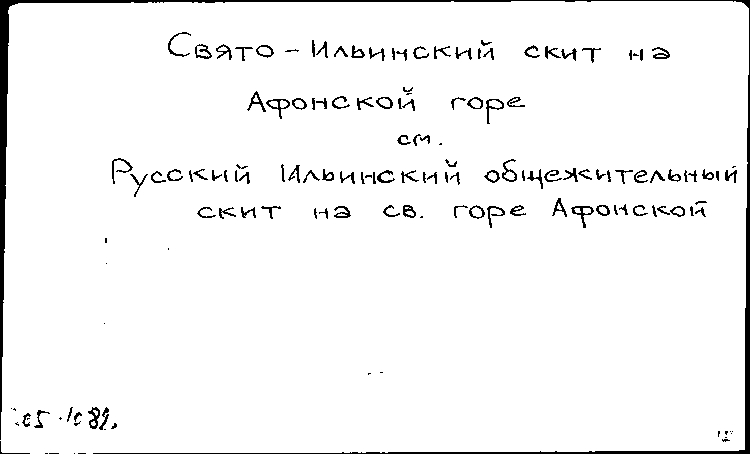 Свято-Ильинский скит на
Афонской горе
см.
Русский Ильинский общежительный
скит на св. горе Афонской
05.1089.